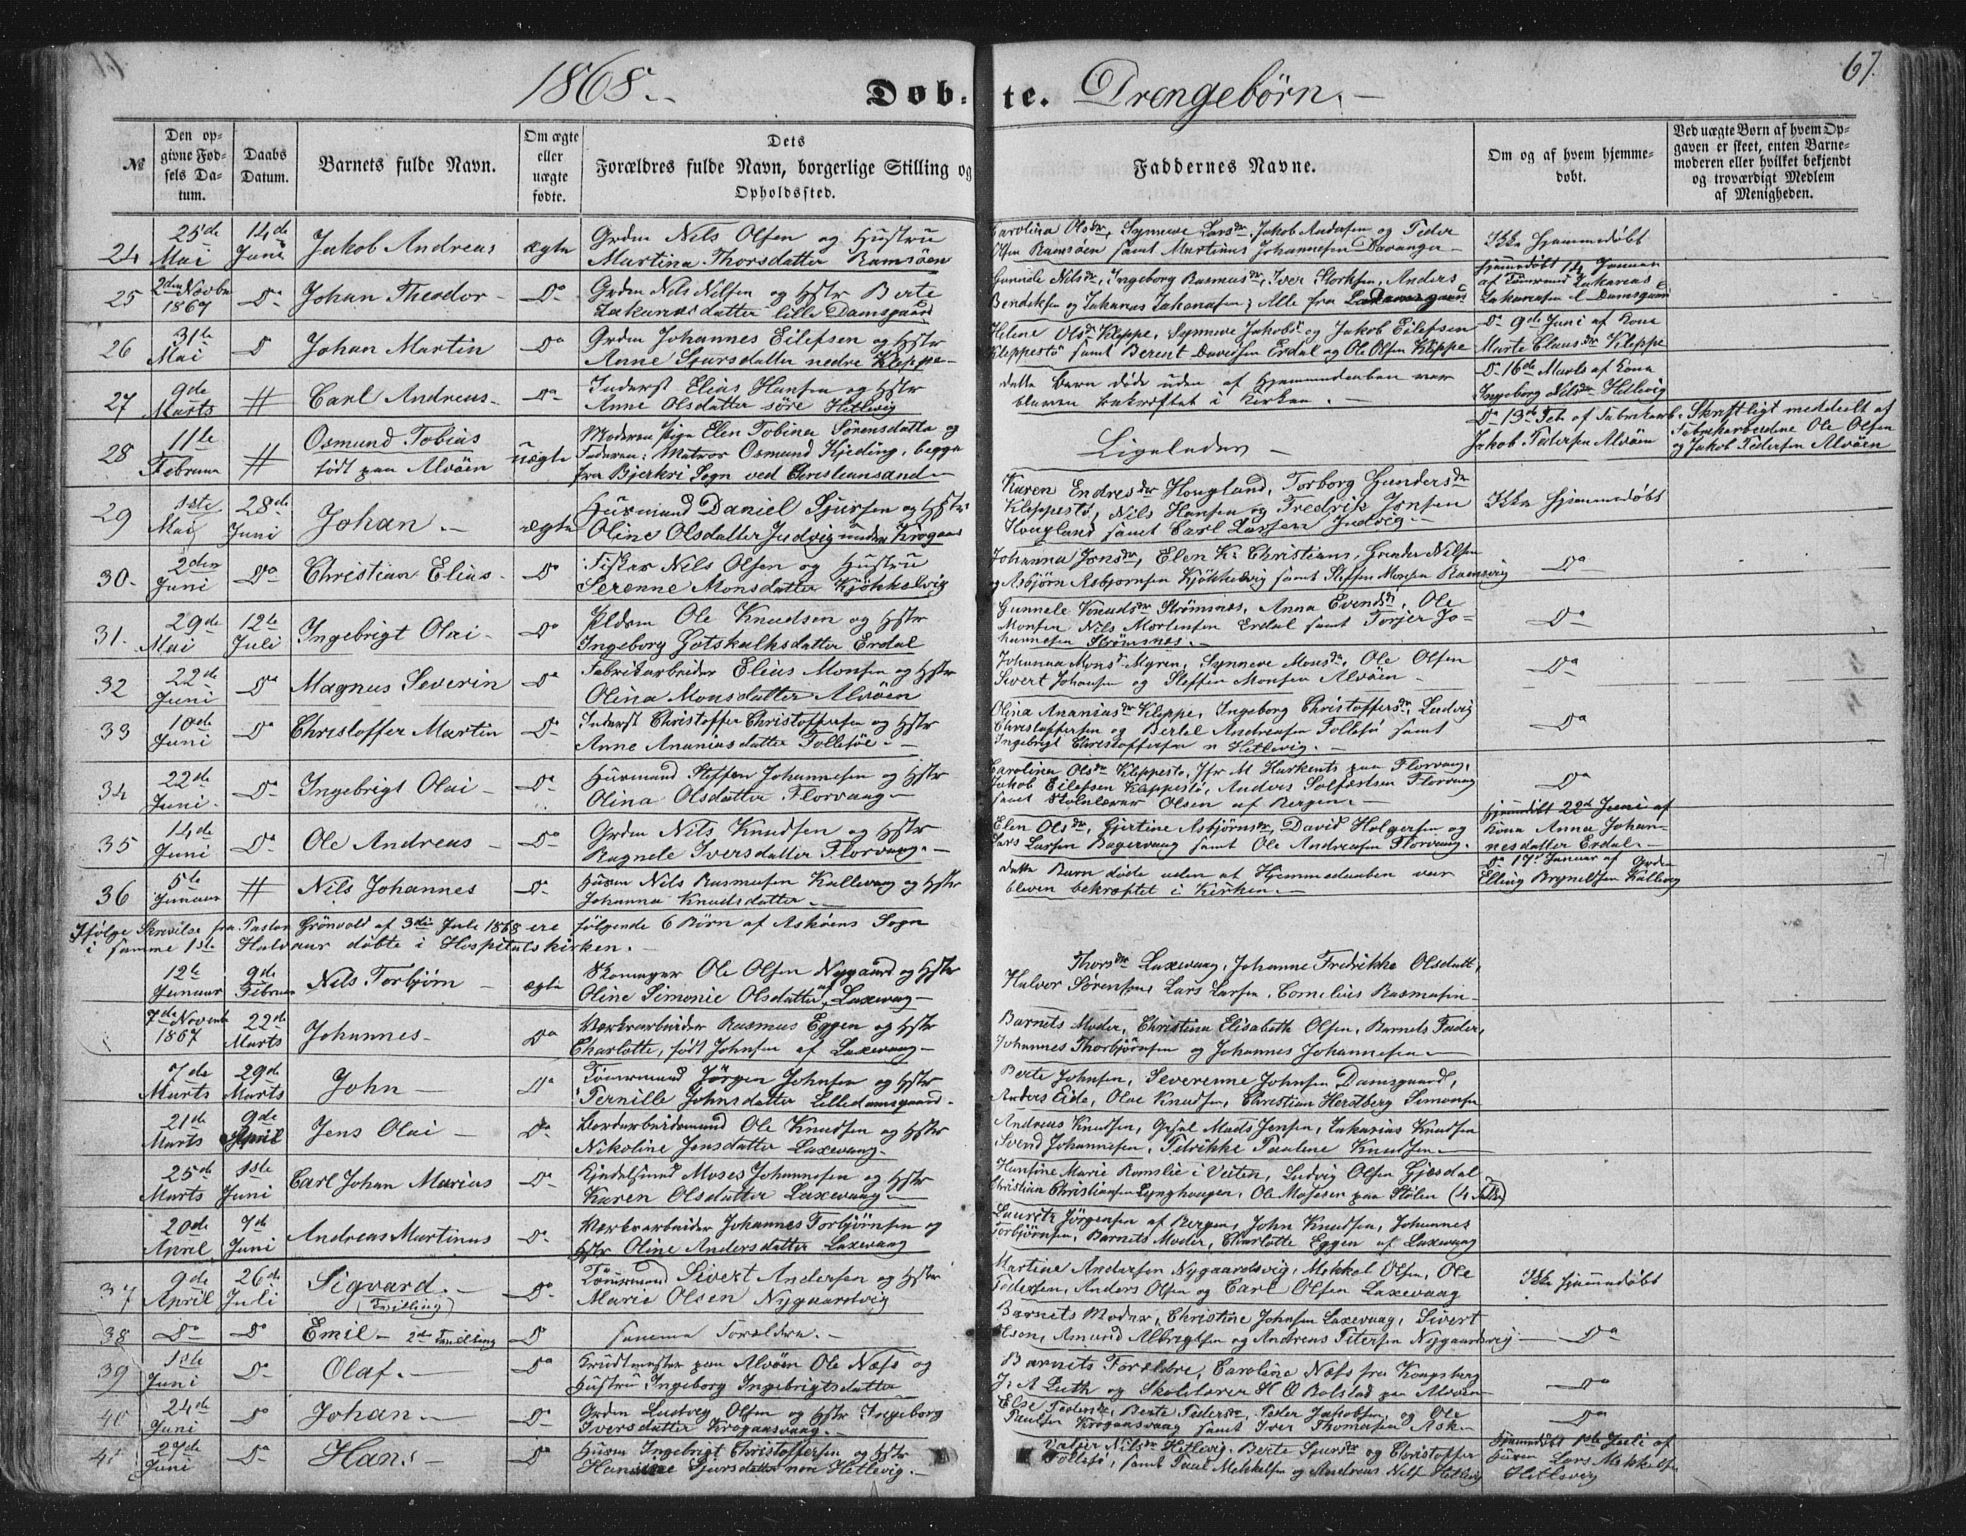 1868. Døbte. Drengebørn. 67.
№
Den opgivne Fødsels Datum.
Daabs Datum.
Barnets fulde Navn.
Om ægte eller uægte fødte.
Dets Forældres fulde Navn, borgerlige Stilling og Opholdssted.
Faddernes Navne.
Om og af hvem hjemmedøbt.
Ved uægte Børn af hvem Opgaven er skeet, enten Barnemoderen eller hvilket bekjendt og troværdigt Medlem af Menigheden.
24 25de Mai 14de Juni Jakob Andreas ægte Grdm Nils Olsen og Hustru
Martina Thorsdatter Ramsöen
Carolina Olsdr, Synneve Larsdr, Jakob Andersen og Peder
Olsen Ramsöen samt Martinus Johannesen Davanger Ikke hjemmedöbt
25 2den Novbr 1867 Do Johan Theodor Do Grdm Nils Nilsen og Hstr Berte
Zakariasdatter lille Damsgaard
Gunnele Nilsdr, Ingeborg Rasmusdr, Iver Storksen, Anders
Bendiksen og Zakarias Zakariasen, Alle fra L Damsgaard
hjemmedöbt 14 Januar
af Tömrmand Zakarias
Zakariasen L Damsgaard
26 31te Mai Do Johan Martin Do Grdm Johannes Eilefsen og Hstr
Anne Sjursdatter nedre Kleppe
Helene Olsdr Kleppe, Synneve Jakobsdr og Jakob Eilefsen
Kleppestö samt Berent Davidsen Erdal og Ole Olsen Kleppe
Do 9de Juni af Kone
Marte Clausdr Kleppe
27 9de Marts # Carl Andreas Do Inderst Elias Hansen og Hstr
Anne Olsdatter söre Hetlevig
dette Barn döde uden at Hjemmedaaben var
bleven bekræftet i Kirken.
Do 16de Marts af Kone
Ingeborg Nilsdr Hetlevig
28 11te Februar # Osmund Tobias
födt paa Alvöen uægte Moderen: Pige Elen Tobine Sörensdatter og
Faderen: Matros Osmund Kjeding, begge
fra Bjerkri Sogn ved Christiansand
Ligeledes
Do 13de Feb af Fabrikarb.
Jakob Pedersen Alvöen
Skriftligt meddelt af
Fabrikarbeiderne Ole Olsen
og Jakob Pedersen Alvöen
29 1ste Mai 28de Juni Johan ægte Husmand Daniel Sjursen og Hstr
Oline Olsdatter Indvig under Krogaas
Karen Endresdr Hougland, Torborg Gundersdr
Kleppestö, Nils Hansen og Fredrik Jensen
Hougland samt Carl Larsen Indvig
Ikke hjemmedöbt
30 2den Juni Do Christian Elias Do Fisker Nils Olsen og Hustru
Serenne Monsdatter Kjökkelvig
Johanna Jonsdr, Elen K. Christians, Gunder Nilsen
og Asbjörn Asbjörnsen Kjökkelvig samt Steffen Monsen Ramsvig Do
31. 29de Mai 12te Juli Ingebrigt Olai Do Pldsm Ole Knudsen og Hstr
Ingeborg Gotskalksdatter Erdal
Gunnele Knudsdr Strömsnes, Anna Evensdr, Ole
Monsen Nils Mortensen Erdal samt Torjer Jo-
hannesen Strömsnes. Do
32 22de Juni Do Magnus Severin Do Fabrikarbeider Elias Monsen og Hstr
Olina Monsdatter Alvöen
Johanna Monsdr Myren, Synneve Monsdr, Ole Olsen
Sivert Johansen og Steffen Monsen Alvöen Do
33 10de Juni Do Christoffer Martin Do Inderst Christoffer Christoffersen og Hstr
Anne Ananiasdatter Follesöe.
Olina Ananiasdr Kleppe, Ingeborg Christoffersdr, Ludvig
Christoffersen og Bertel Andreasen Follesö samt
Ingebrigt Christoffersen n Hetlevig. Do
34 22de Juni Do Ingebrigt Olai Do Husmand Steffen Johannesen og Hstr
Olina Olsdatter Florvaag
Carolina Olsdr Kleppestö, Jfr M Harkents paa Florvaag,
Jakob Eilefsen Kleppestö, Anders Solfæstsen Florvaag
samt Skolelærer Olsen af Bergen. Do
35 14de Juni Do Ole Andreas Do Grdm Nils Knudsen og Hstr
Ragnele Iversdatter Florvaag.
Elen Olsdr, Gjertine Asbjörnsdr, David Holgersen og
Lars Larsen Bagervaag samt Ole Andreasen Florvaag.
hjemdöbt 22de Juni af
Kone Anna Johan-
nesdatter Erdal
36 5te Januar # Nils Johannes Do Husm Nils Rasmusen Kallevaag og Hstr
Johanna Knudsdatter.
dette Barn döde uden at Hjemmedaaben var
bleven bekræftet i Kirken.
Do 17de Januar af Grdm
Elling Brynildsen Kallevag
Ifölge Skrivelse fra Pastor Grönvold af 3die Juli 1868 ere fölgende 6 Börn af Asköens Sogn
i samme 1ste Halvaar döbte i Hospitalskirken.
12te Januar 9de Februar Nils Torbjörn ægte Skomager Ole Olsen Nygaard og Hstr
Oline Simonie Olsdatter af Laxevaag
Thorsdr Laxevaag, Johanne Fredrikke Olsdatt,
Halvor Sörensen, Lars Larsen, Cornelius Rasmusen
7de Novemb 1867 22de Marts Johannes Do Værkarbeider Rasmus Eggen og Hstr
Charlotte, födt Johnsen af Laxevaag
Barnets Moder, Christina Elisabeth Olsen, Barnets Fader,
Johannes Thorbjörnsen og Johannes Johannesen
7de Marts 29de Marts John Do Tömrmand Jörgen Johnsen og Hstr
Pernille Johnsdatter Lilledamsgaard
Berte Johnsen, Severenne Johnsen Damsgaard,
Anders Eide, Olae Knudsen, Christian Herstberg Simonsen
21de Marts 9de April Jens Olai Do Jordarbeidsmand Ole Knudsen og Hstr
Nikoline Jensdatter Laxevaag
Andreas Knudsen, Gjsl Mads Jensen, Zakarias Knudsen
Svend Johannesen, Fredrikke Pauline Knudsen
25de Marts 1ste Juni Carl Johan Marius Do Kjedelsmed Moses Johannesen og Hstr
Karen Olsdatter Laxevaag
Hansine Marie Romslie i Veiten, Ludvig Olsen Gjesdal
Christian Christiansen Lynghaugen, Ole Mosesen paa Stölen
20de April 7de Juni Andreas Martinus Do Værkarbeider Johannes Torbjörnsen og
Hstr Oline Andersdatter Laxevaag
Lauretz Jörgensen af Bergen, John Knudsen, Johannes
Torbjörnsen, Barnets Moder, Charlotte Eggen af Laxevaag
37 9de April 26de Juli Sigvard.
(Tvilling) Do Tömrmand Sivert Andersen og Hstr
Marie Olsen Nygaardsvig
Martine Andersen Nygaardsvig, Mekkel Olsen, Ole
Pedersen, Anders Olsen og Carl Olsen Laxevaag Ikke hjemmedöbt
38 Do Do Emil 2de Tvilling Do samme Forældre.
Barnets Moder, Christine Johnsen Laxevaag, Sivert
Olsen, Asmund Albrigtsen og Andreas Petersen Nygaardsvig Do
39 1ste Juni Do Olaf. Do Krudtmester paa Alvöen Ole Næss og
Hustru Ingeborg Ingebrigtsdatter
Barnets Forældre, Caroline Næss fra Kongsberg
J. A Luth og Skolelærer H O Bolstad paa Alvöen Do
40 24de Juni Do Johan. Do Grdm Ludvig Olsen og Hstr Ingeborg
Iversdatter Krogaasvaag.
Else Pedersdr, Berte Pedersdr, Peder Jacobsen, og Ole
Paulsen Krogaasvaag samt Iver Thomasen Ask Do
41 27de Juni Do Hans Do Husm Ingebrigt Christoffersen og Hstr
Hansine Sjursdatter nore Hetlevig.
Nilsdr Hetlevig, Berte Sjursdr og Christoffer
Follesö, samt Paul Mekkelsen og Andreas Nilsen Hetlevig
hjemmedöbt 1ste Juli af
Husm Lars Mekkelsen
Hetlevig